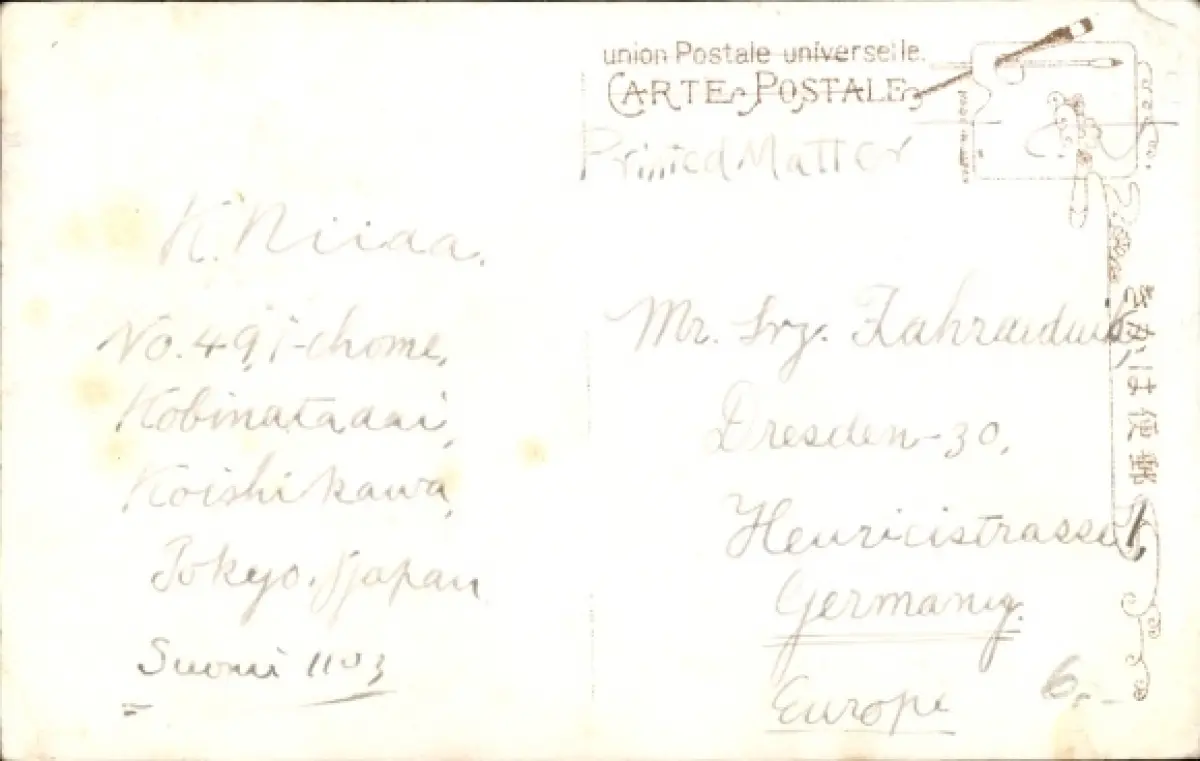 union Postale universelle.
CARTE POSTALE
Printed Matter
K. Niiaa.
No. 49, 1-chome,
Kobinatadai,
Koishikawa,
Tokyo. Japan
Suomi 1103
Mr.
Dresden-30,
Henricistrasse 1,
Germany.
Europe
6.-
きがは便郵